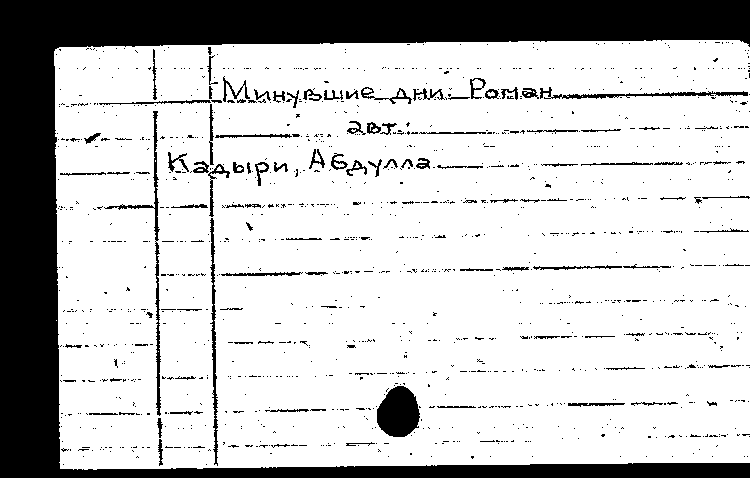 Минувшие дни. Роман
авт.:
Кадыри, Абдулла.